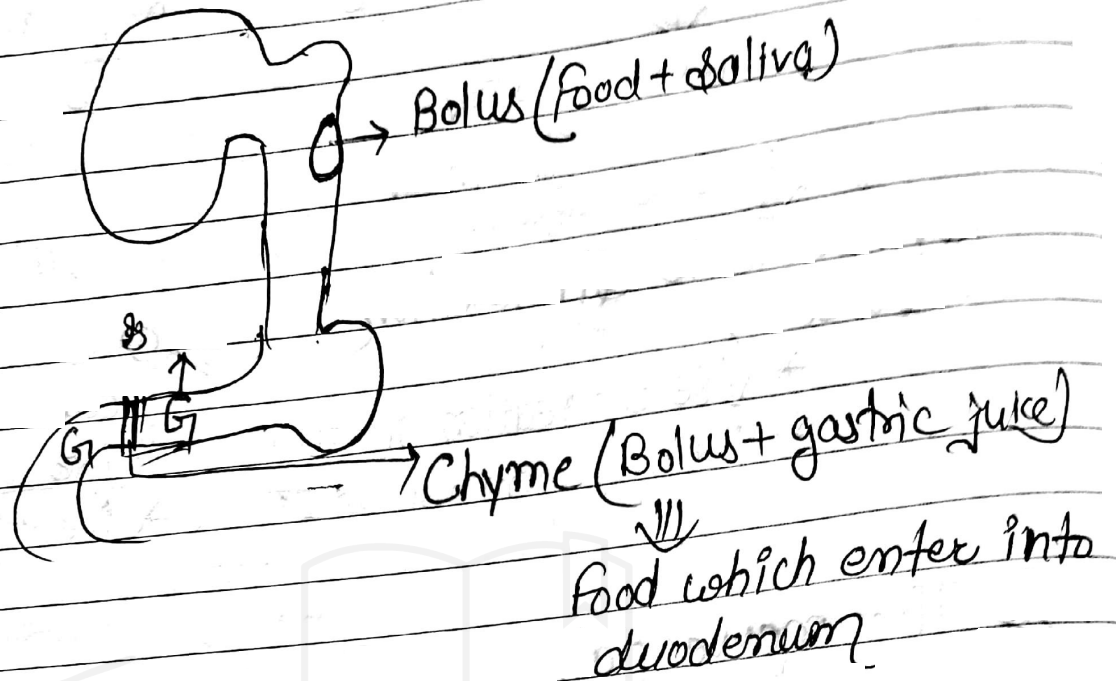 Bolus (food + Saliva)
G
G
Chyme (Bolus + gastric juice)
food which enter into
duodenum